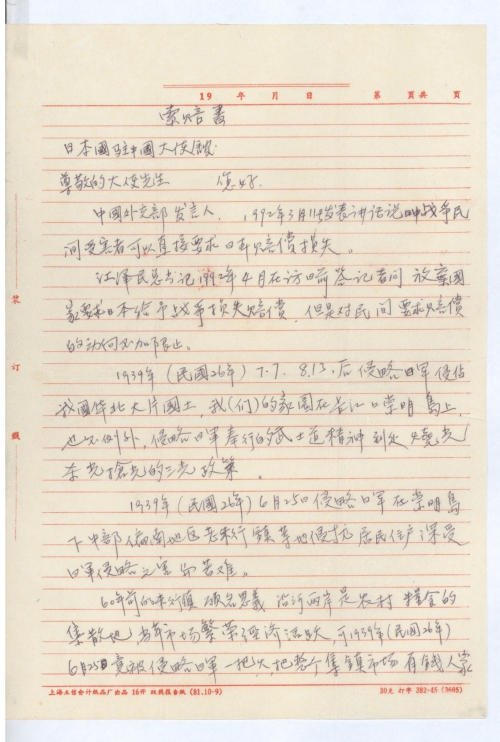 19 年 月 日 第 页共 页
索赔书
日本國驻中國大使馆
尊敬的大使先生 您好.
中国外交部发言人, 1992年3月11发表讲话说中战争民
间受害者可以直接要求日本赔偿损失。
江泽民总书记1992年4月在访日前答记者问 放棄國
家要求日本给予战争损失赔偿, 但是对民间要求赔偿
的动向不加限止。
1939年(民國26年) 7.7. 8.13. 后侵略日軍侵佔
我國华北大片國土, 我(们)的家園在长江口崇明島上,
也不例外, 侵略日軍奉行的武士道精神到处燒光
杀光搶光的三光政策.
1939年(民國26年) 6月25日侵略日軍在崇明島
下中部偏南地区 行鎮等地侵扰居民住户深受
日軍侵略之害而苦难。
60年前的 行鎮 顧名思義 沿河两岸是农村 糧食的
集散地, 当年市场繁荣经济活跃, 可1939年(民國26年)
6月25日竟被侵略日軍一把火把整个集鎮市场有錢人家
装
訂
綫
上海立信会计纸品厂出品 16开 双线报告纸 (81.10-9) 30克 打字 382-45 (3605)